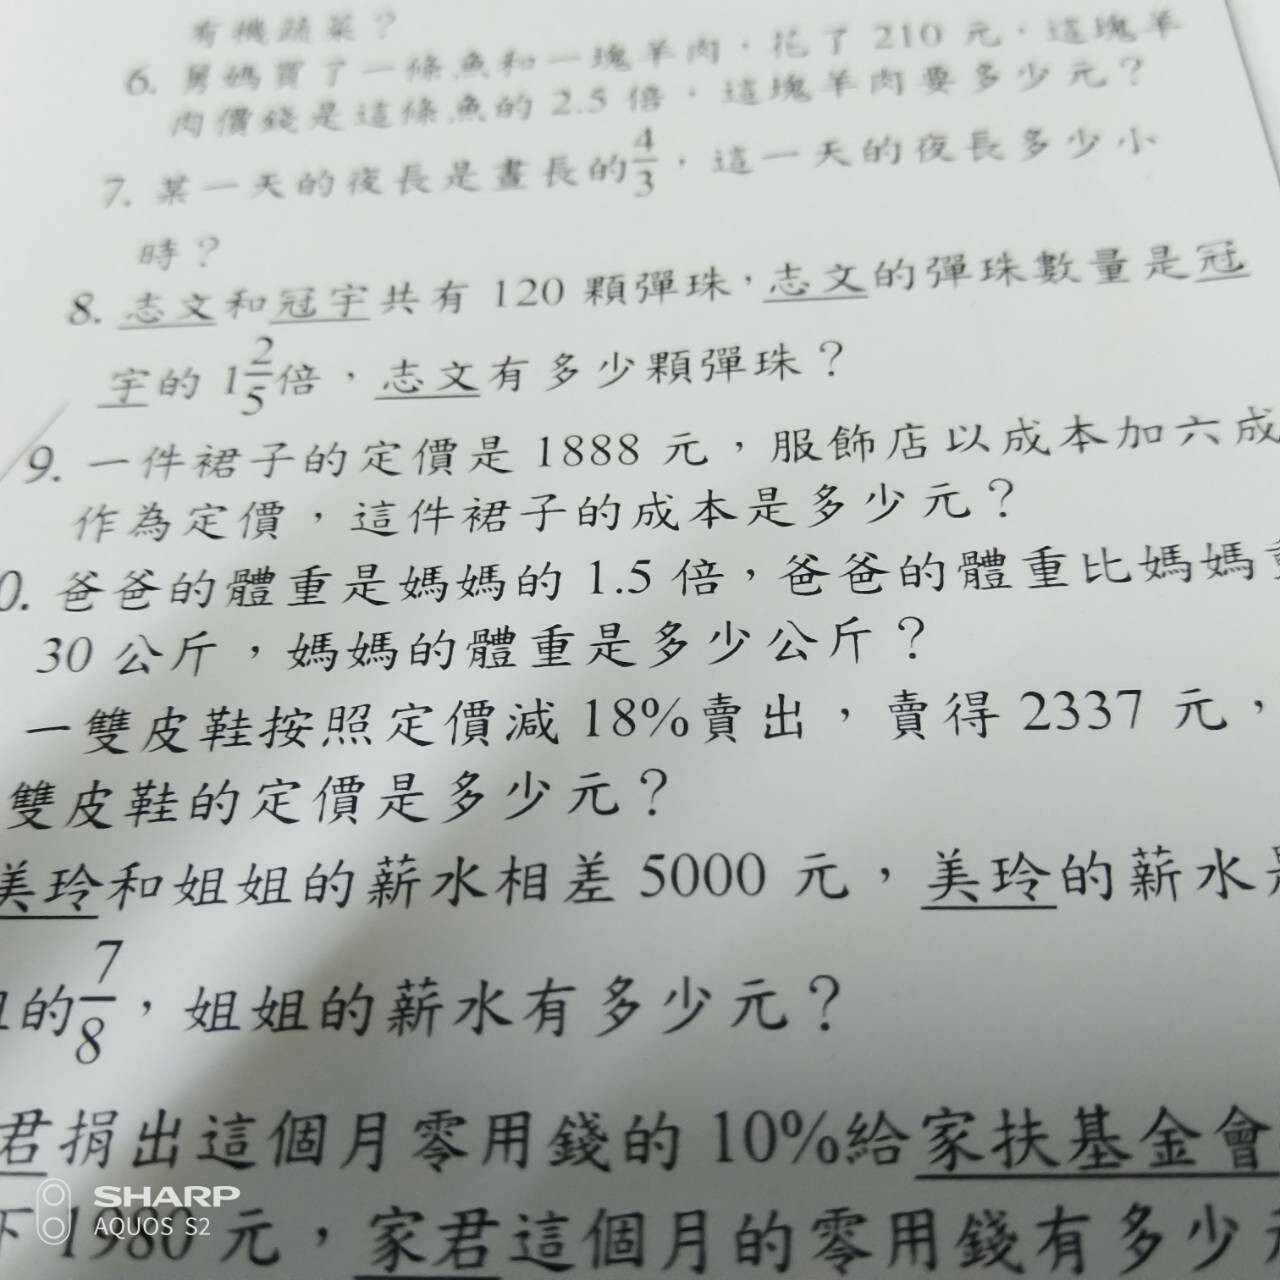 有機蔬菜？
6. 舅媽買了一條魚和一塊羊肉，花了 210 元，這塊羊
肉價錢是這條魚的 2.5 倍，這塊羊肉要多少元？
7. 某一天的夜長是晝長的4/3，這一天的夜長多少小
時？
8. 志文和冠宇共有 120 顆彈珠，志文的彈珠數量是冠
宇的 1 2/5倍，志文有多少顆彈珠？
9. 一件裙子的定價是 1888 元，服飾店以成本加六成
作為定價，這件裙子的成本是多少元？
0. 爸爸的體重是媽媽的 1.5 倍，爸爸的體重比媽媽重
30 公斤，媽媽的體重是多少公斤？
一雙皮鞋按照定價減 18%賣出，賣得 2337 元，
雙皮鞋的定價是多少元？
美玲和姐姐的薪水相差 5000 元，美玲的薪水是
的7/8，姐姐的薪水有多少元？
君捐出這個月零用錢的 10%給家扶基金會
下 1980 元，家君這個月的零用錢有多少
SHARP
AQUOS S2